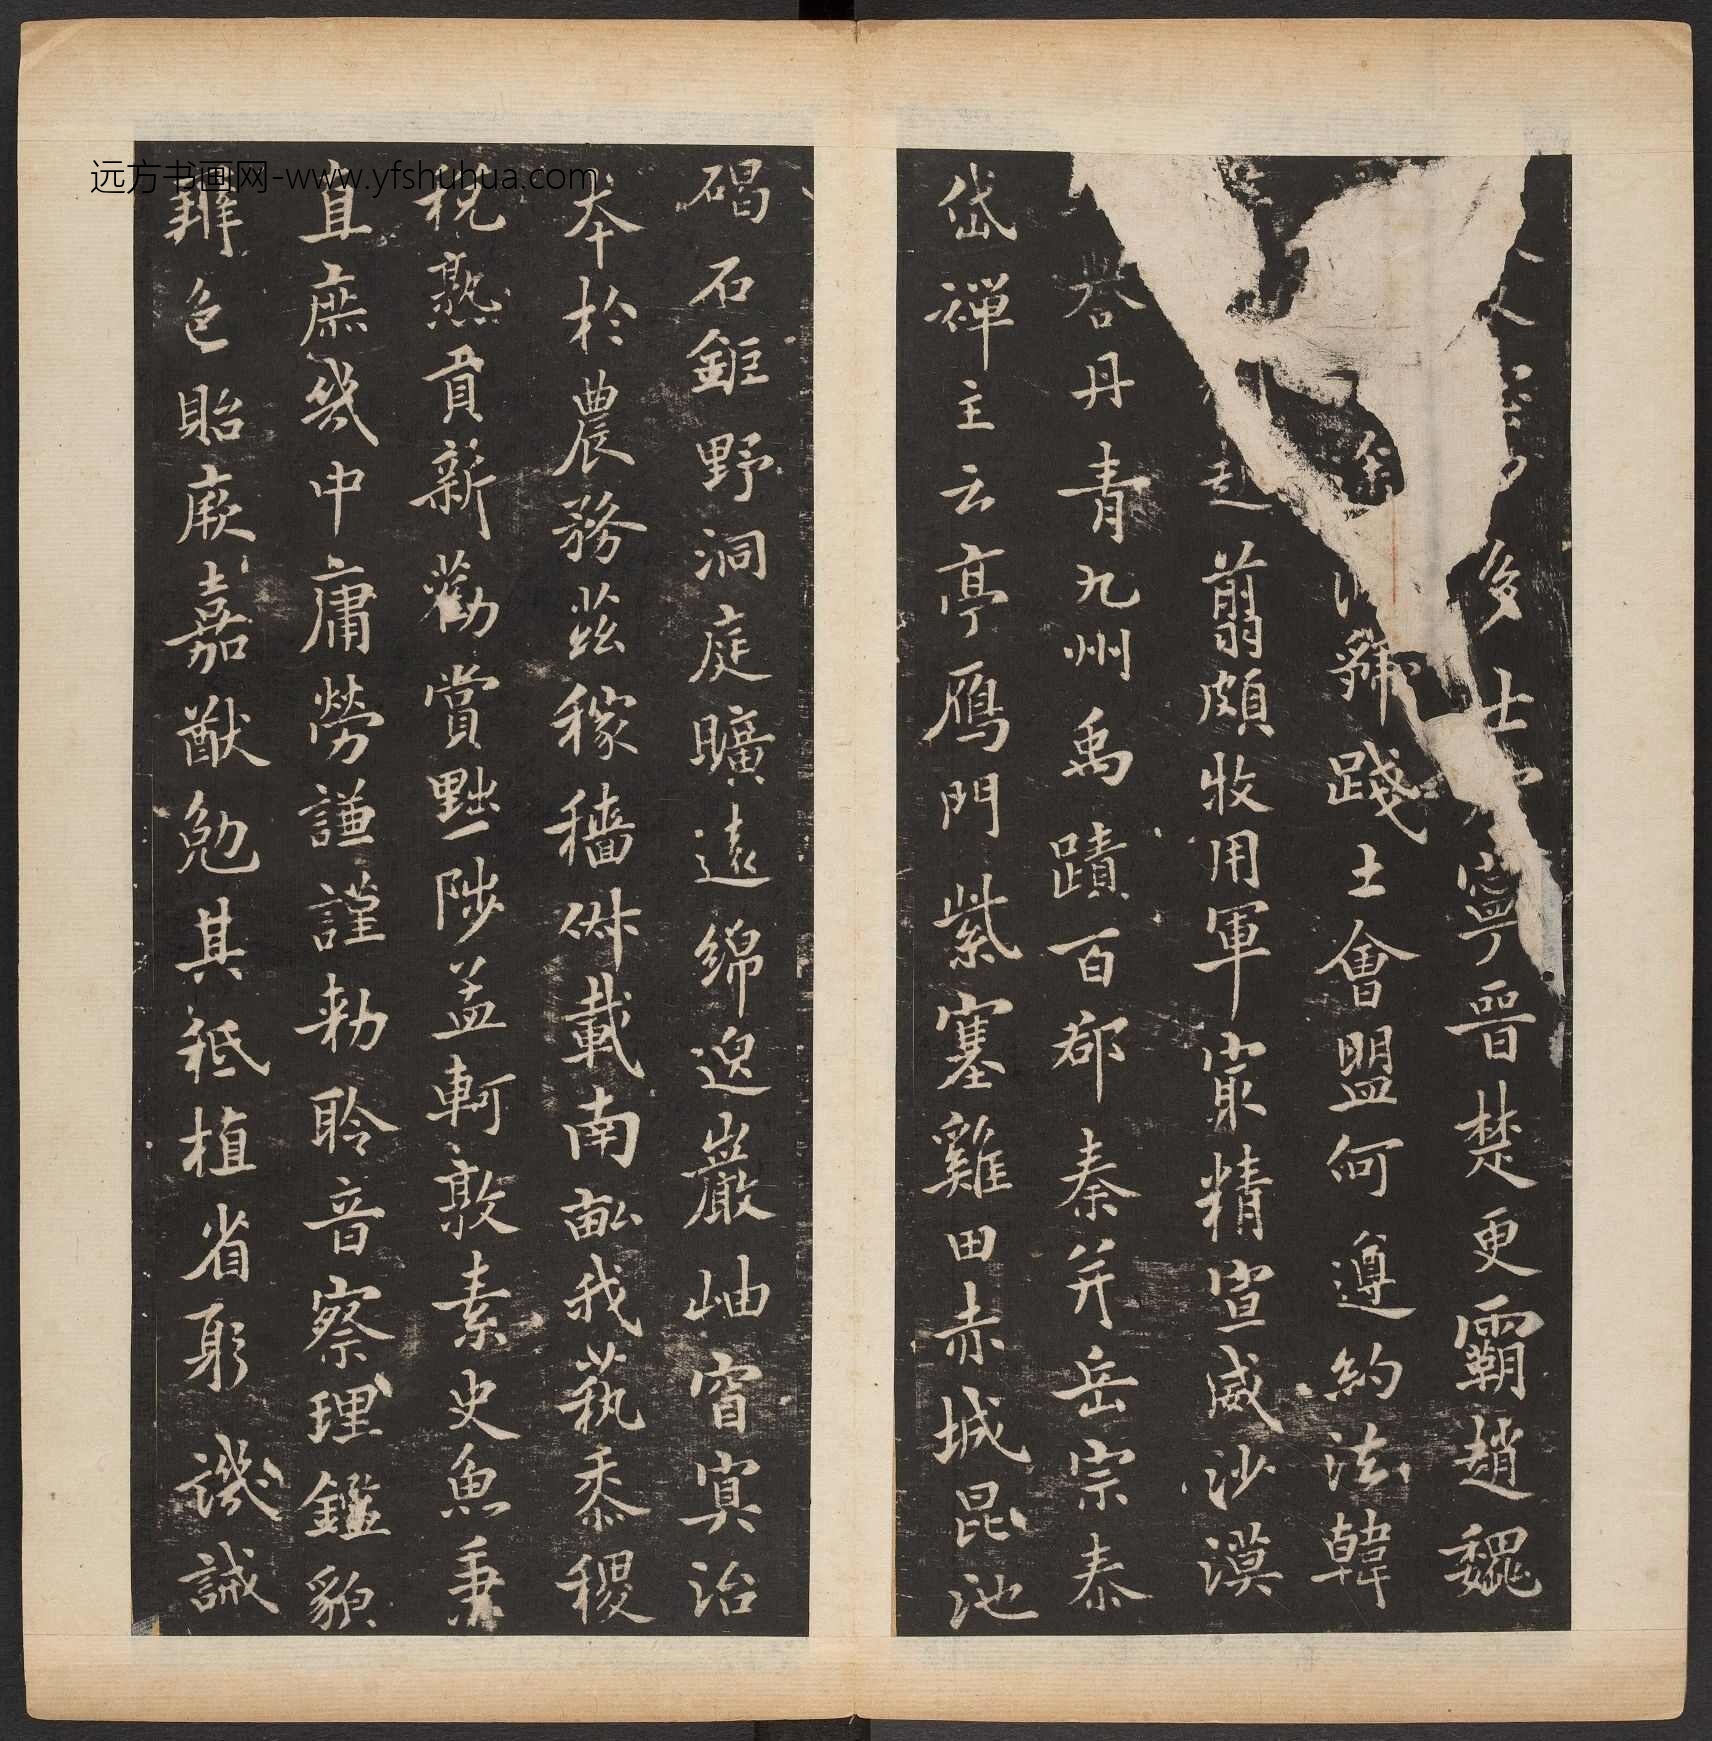 多士寧晉楚更霸趙魏
虢踐土會盟何遵約法韓
起翦頗牧用軍㝡精宣威沙漠
譽丹青九州禹蹟百郡秦并岳宗泰
岱禪主云亭鴈門紫塞雞田赤城昆池
碣石鉅野洞庭曠遠綿邈巖岫窅冥治
本於農務茲稼穡俶載南畝我蓺黍稷
稅熟貢新勸賞黜陟孟軻敦素史魚秉
直庶幾中庸勞謙謹勅聆音察理鑑貌
辨色貽厥嘉猷勉其祗植省躬譏誡
远方书画网-www.yfshuhua.com